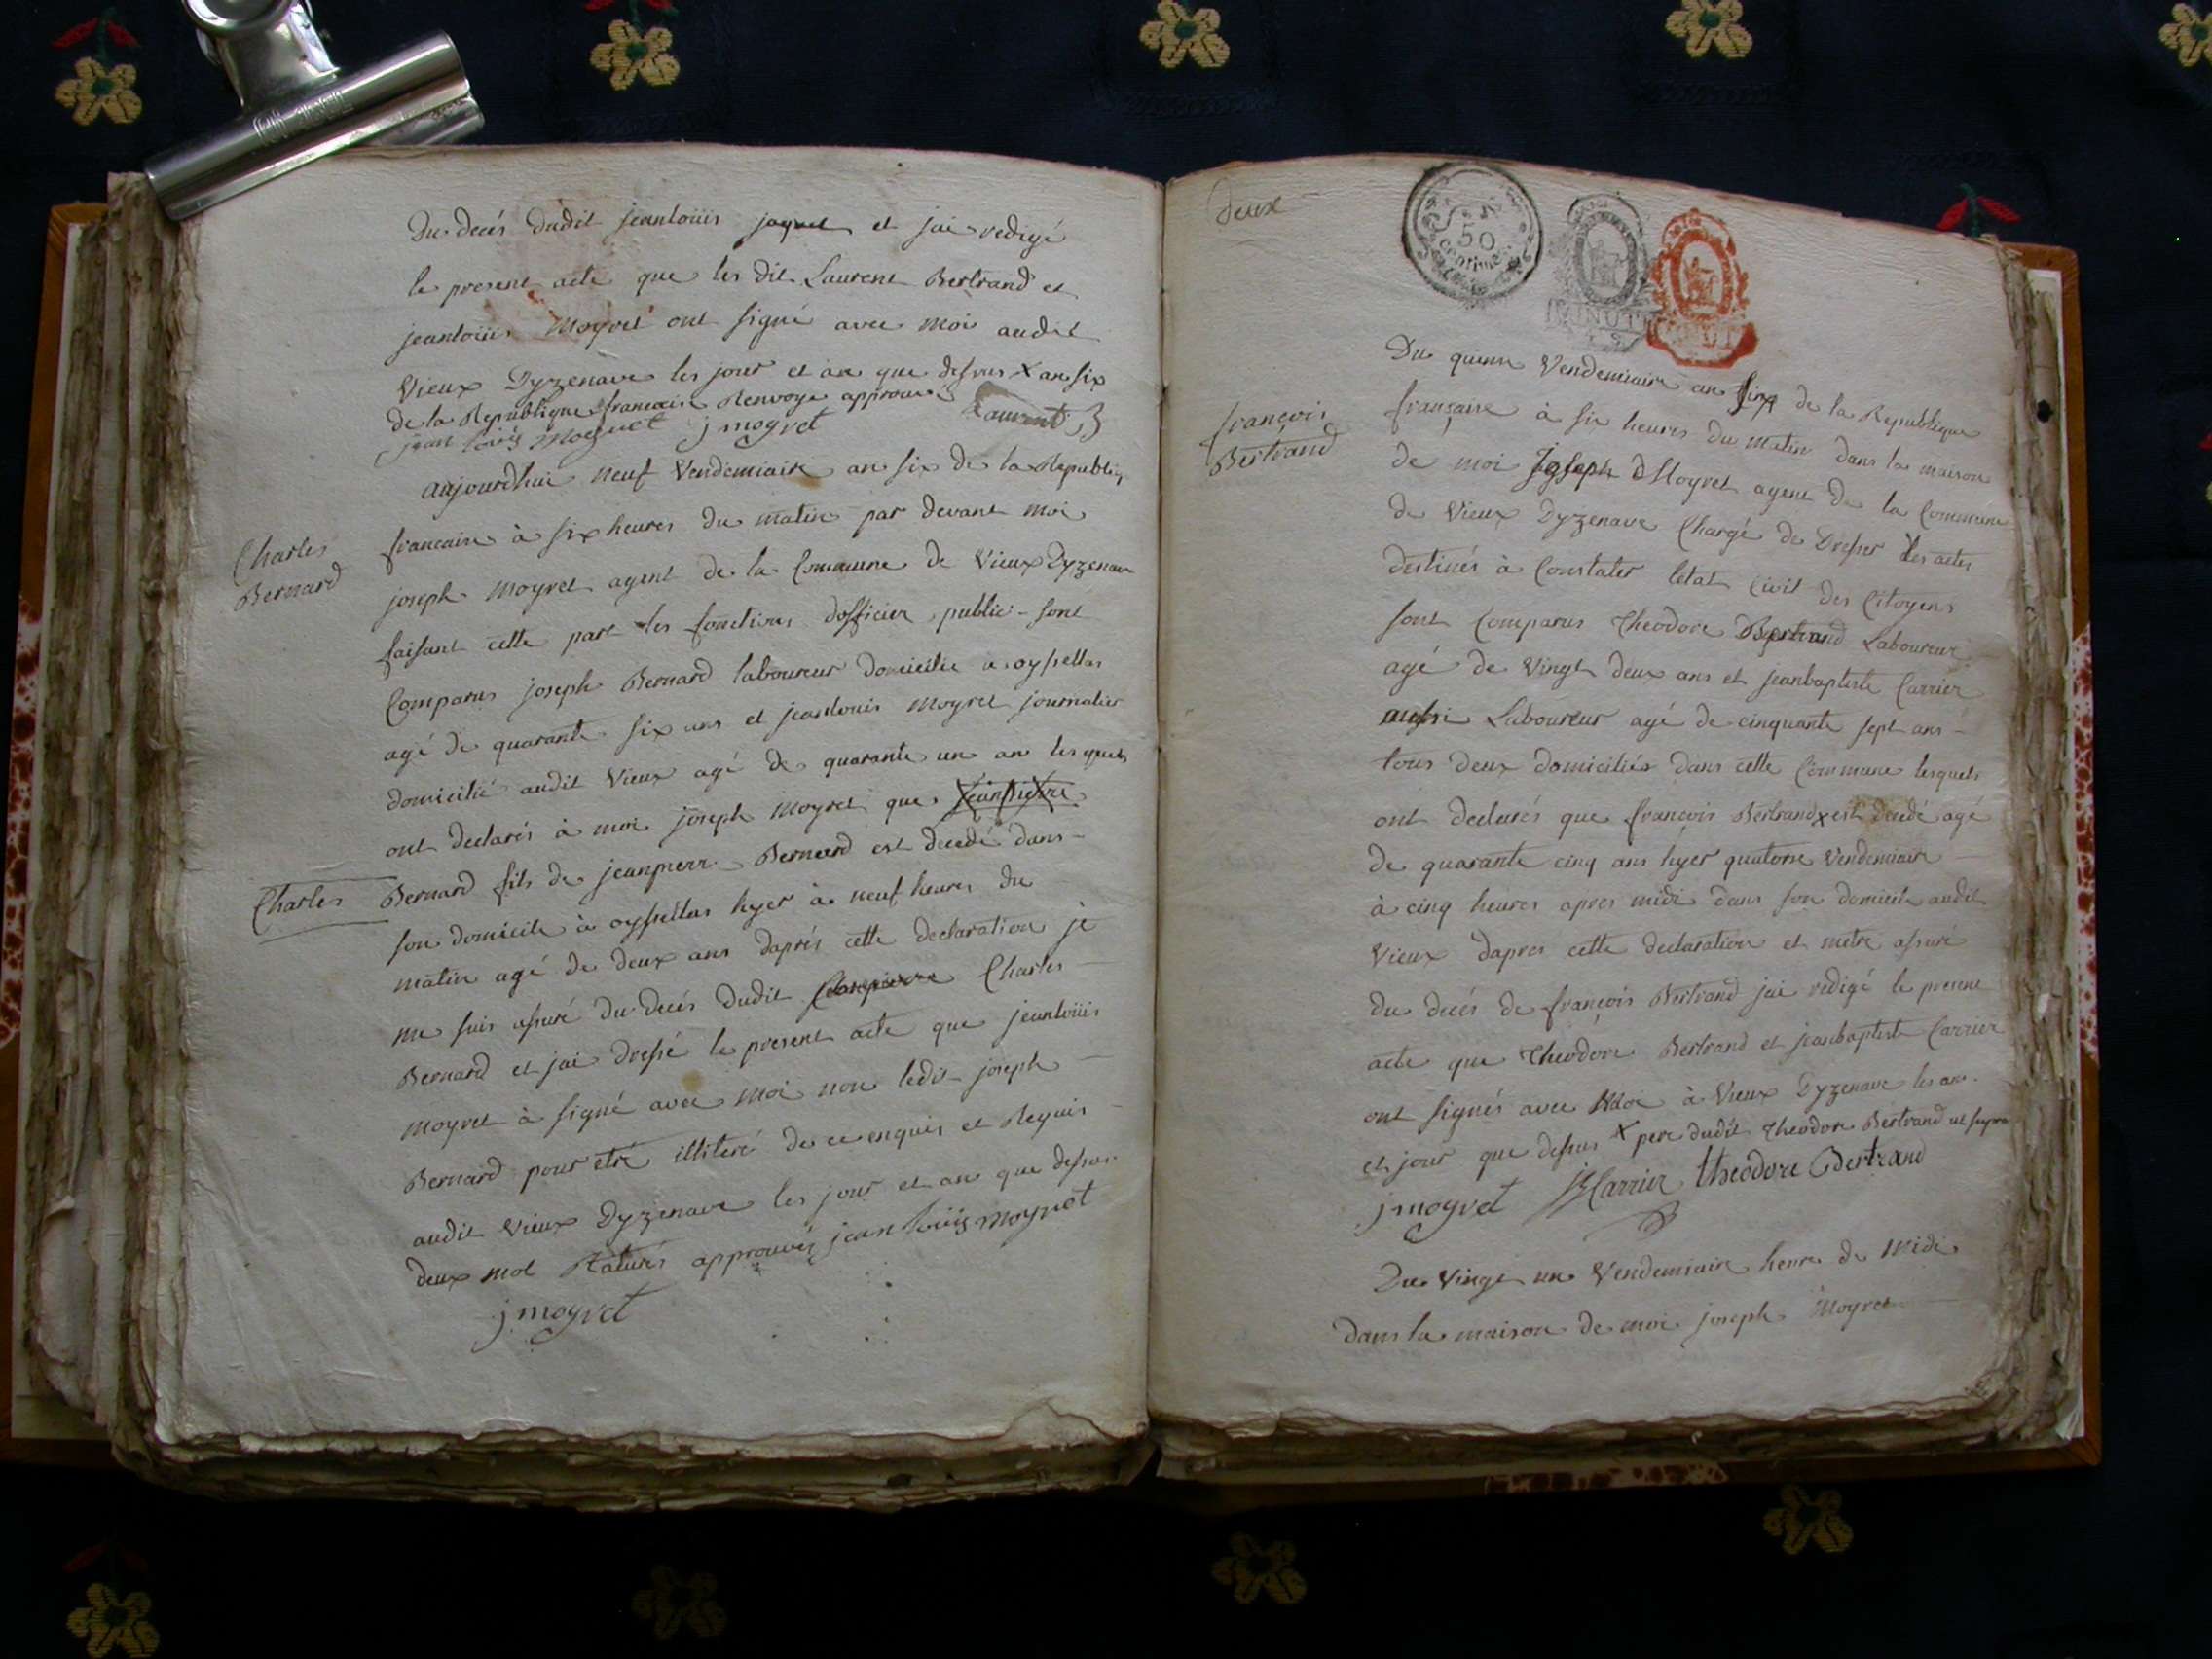 Du decés dudit jeanloüis jayret et jai redigé
le present acte que les dit Laurent Bertrand et
jeanloüis Moyret ont signé avec moi audit
Vieux Dyzenave les jour et an que dessus X an six
de la Republique francaise Renvoye approuvé
jean loüis Moyret j moyret Laurent B
aujourdhui neuf Vendemiaire an six de la Republiq
Charles
Bernard
francaise à six heures du matin par devant moi
joseph Moyret agent de la Commune de Vieux Dyzenave
faisant cette part les fonctions dofficier public sont
Comparus joseph Bernard laboureur domicilié a oyssellas
agé de quarante six ans et jeanlouis Moyret journalier
domicilié audit Vieux agé de quarante un an lesquels
ont declarés à moi joseph Moyret que jeanpierre
Charles
Bernard fils de jeanpierre Bernard est decedé dans
son domicile à oyssellas hyer à neuf heures du
matin agé de deux ans daprés cette declaration je
me suis assuré du decés dudit jeanpierre Charles
Bernard et jai dressé le present acte que jeanloüis
Moyret à signé avec moi non ledit joseph
Bernard pour etre illiteré de ce enquis et Requis
audit Vieux Dyzenave les jour et an que dessus
deux mot Raturés approuvés jean loüis moyret
j moyret
deux
50
centimes
MINUTE
Du quinze Vendemiaire an six de la Republique
françois
Bertrand
française à six heures du matin dans la maison
de moi Joseph Moyret agent de la Commune
de Vieux Dyzenave Chargé de Dresser les actes
destinés à Constater letat Civil des Citoyens
sont Comparus Theodore Bertrand Laboureur
agé de Vingt deux ans et jeanbaptiste Carrier
aussi Laboureur agé de cinquante sept ans
tous deux domiciliés dans cette Commune lesquels
ont declarés que françois Bertrand X est decedé agé
de quarante cinq ans hyer quatorse Vendemiaire
à cinq heures apres midi dans son domicile audit
Vieux dapres cette declaration et metre assuré
du decés de françois Bertrand jai redigé le present
acte que Theodore Bertrand et jeanbaptiste Carrier
ont signés avec Moi à Vieux Dyzenave les an
et jour que dessus X pere dudit Theodore Bertrand ut supra
j moyret JB Carrier theodore Bertrand
Du Vingt un Vendemiaire heure de Midi
dans la maison de moi joseph Moyret